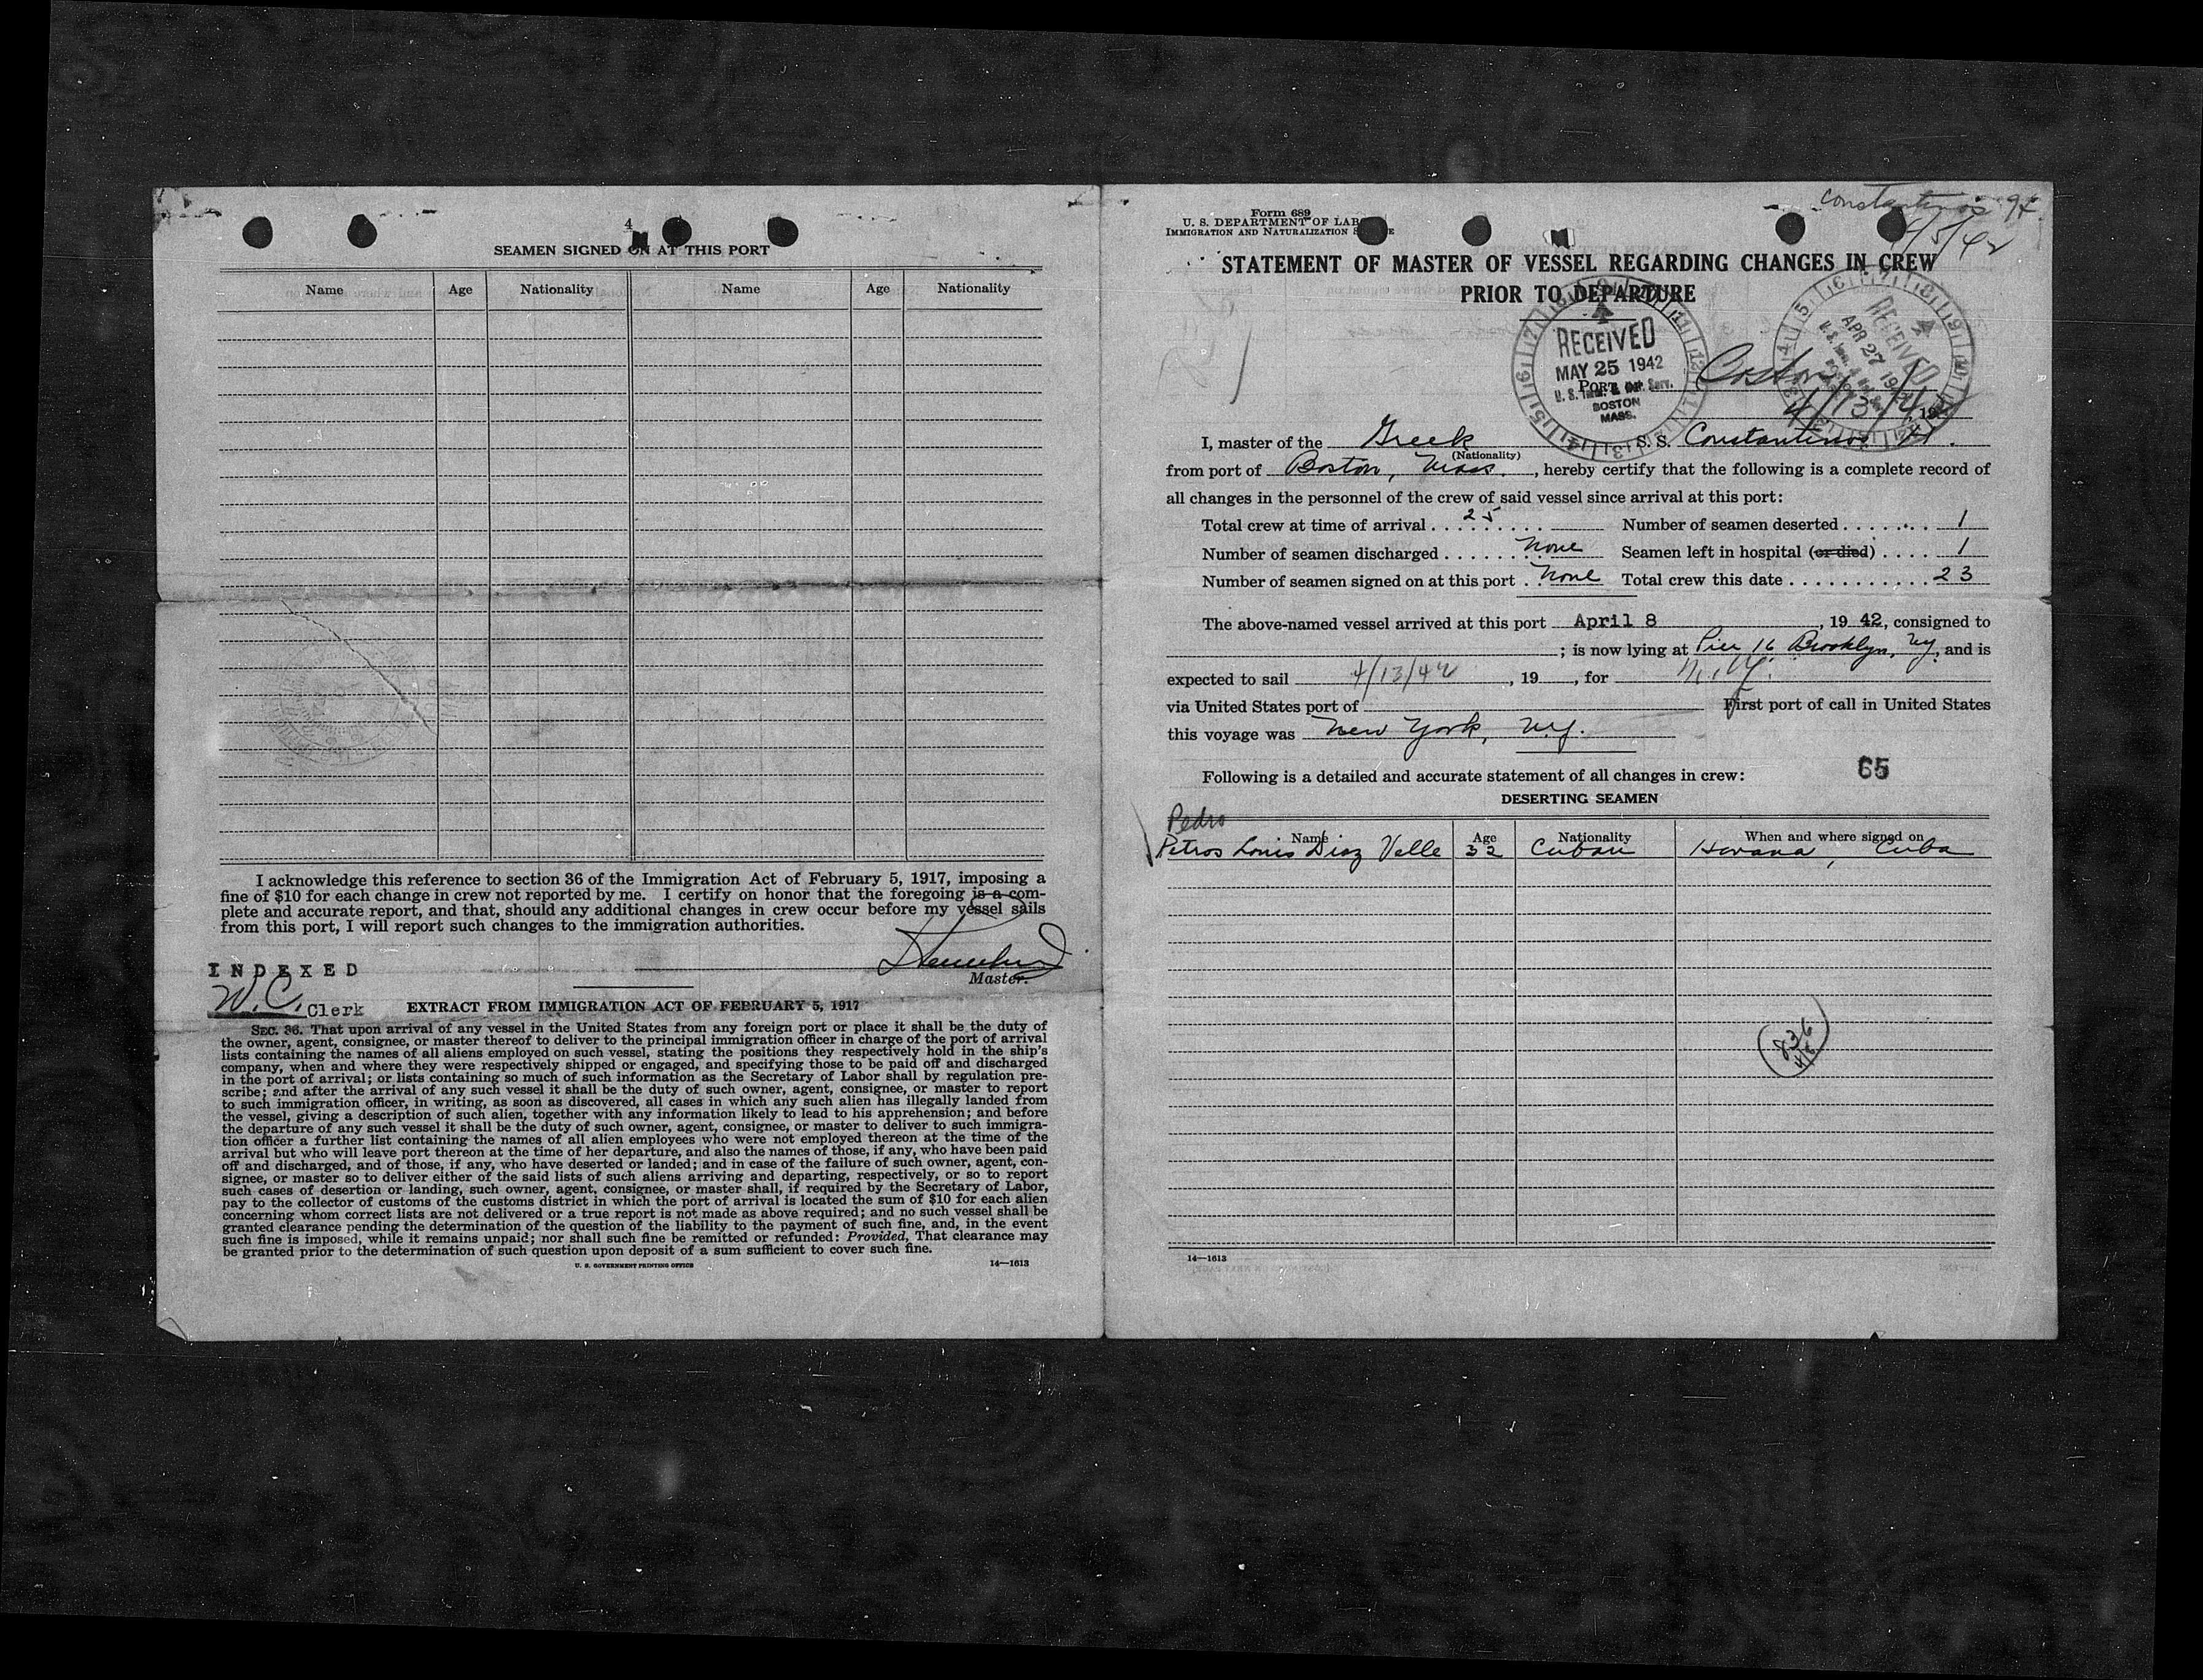 4
SEAMEN SIGNED ON AT THIS PORT
Name Age Nationality Name Age Nationality
I acknowledge this reference to section 36 of the Immigration Act of February 5, 1917, imposing a
fine of $10 for each change in crew not reported by me. I certify on honor that the foregoing is a com-
plete and accurate report, and that, should any additional changes in crew occur before my vessel sails
from this port, I will report such changes to the immigration authorities.
Master.
INDEXED
W.C. Clerk
EXTRACT FROM IMMIGRATION ACT OF FEBRUARY 5, 1917
SEC. 36. That upon arrival of any vessel in the United States from any foreign port or place it shall be the duty of
the owner, agent, consignee, or master thereof to deliver to the principal immigration officer in charge of the port of arrival
lists containing the names of all aliens employed on such vessel, stating the positions they respectively hold in the ship's
company, when and where they were respectively shipped or engaged, and specifying those to be paid off and discharged
in the port of arrival; or lists containing so much of such information as the Secretary of Labor shall by regulation pre-
scribe; and after the arrival of any such vessel it shall be the duty of such owner, agent, consignee, or master to report
to such immigration officer, in writing, as soon as discovered, all cases in which any such alien has illegally landed from
the vessel, giving a description of such alien, together with any information likely to lead to his apprehension; and before
the departure of any such vessel it shall be the duty of such owner, agent, consignee, or master to deliver to such immigra-
tion officer a further list containing the names of all alien employees who were not employed thereon at the time of the
arrival but who will leave port thereon at the time of her departure, and also the names of those, if any, who have been paid
off and discharged, and of those, if any, who have deserted or landed; and in case of the failure of such owner, agent, con-
signee, or master so to deliver either of the said lists of such aliens arriving and departing, respectively, or so to report
such cases of desertion or landing, such owner, agent, consignee, or master shall, if required by the Secretary of Labor,
pay to the collector of customs of the customs district in which the port of arrival is located the sum of $10 for each alien
concerning whom correct lists are not delivered or a true report is not made as above required; and no such vessel shall be
granted clearance pending the determination of the question of the liability to the payment of such fine, and, in the event
such fine is imposed, while it remains unpaid; nor shall such fine be remitted or refunded: Provided, That clearance may
be granted prior to the determination of such question upon deposit of a sum sufficient to cover such fine.
U. S. GOVERNMENT PRINTING OFFICE 14—1613
Form 689
U. S. DEPARTMENT OF LAB
IMMIGRATION AND NATURALIZATION
STATEMENT OF MASTER OF VESSEL REGARDING CHANGES IN CREW
PRIOR TO DEPARTURE
RECEIVED
MAY 25 1942
BOSTON
MASS.
RECEIVED
APR 27
PORT
4/13/42, 19
I, master of the Greek S. S. Constantinos
(Nationality)
from port of Boston, Mass., hereby certify that the following is a complete record of
all changes in the personnel of the crew of said vessel since arrival at this port:
Total crew at time of arrival 25 Number of seamen deserted 1
Number of seamen discharged None Seamen left in hospital (or died) 1
Number of seamen signed on at this port None Total crew this date 23
The above-named vessel arrived at this port April 8, 19 42, consigned to
; is now lying at Pier 16 Brooklyn, Ny, and is
expected to sail 4/13/42, 19 , for N.Y.
via United States port of First port of call in United States
this voyage was New York, Ny.
Following is a detailed and accurate statement of all changes in crew:
65
DESERTING SEAMEN
Pedro
Name Age Nationality When and where signed on
Petros Louis Diaz Velle 32 Cuban Havana, Cuba
836
4/8
14—1613